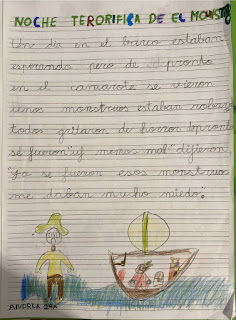 NOCHE TERORIFICA DE EL MONSTR
Un dia en el barco estaban
esperando pero de pronto
en el camarote se vieron
unos monstruos estaban
todos gritaron de horror depronto
se fueron "uf menos mal" dijieron
"Ya se fueron esos monstruos
me daban mucho miedo".
ANDREA 2ºA